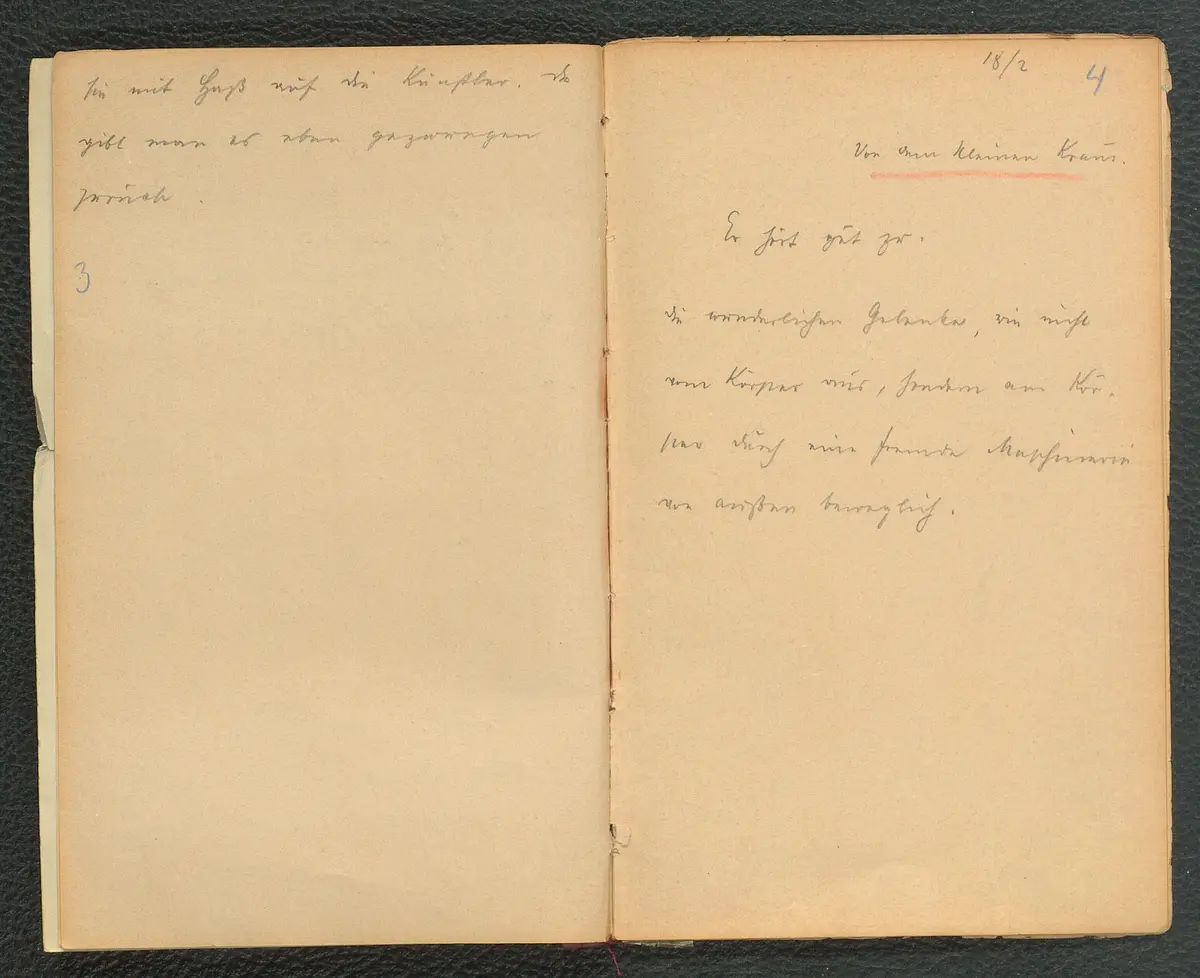 sie mit Haß auf die Künstler. Da
gibt man es eben gezwungen
zurück.
3
18/2
4
Von dem kleinen Kraus.
Er hört gut zu.
die wunderlichen Gelenke, wie nicht
vom Körper aus, sondern am Kör-
per durch eine fremde Maschinerie
von außen beweglich.